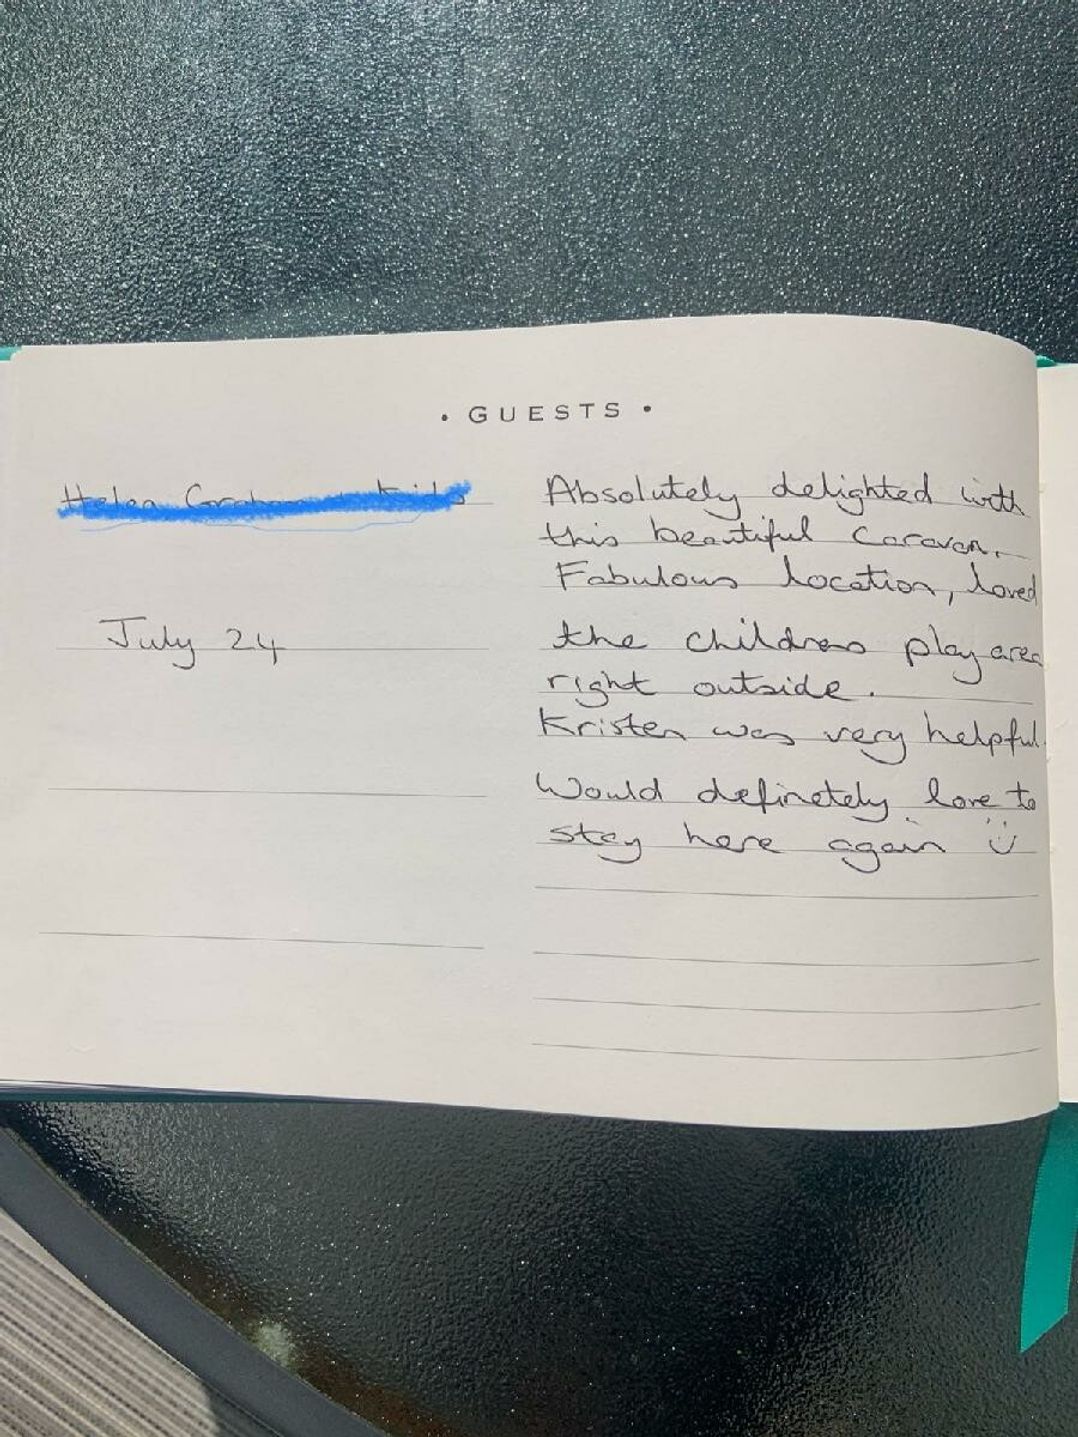 • GUESTS •
Absolutely delighted with
this beautiful Caravan.
Fabulous location, loved
July 24
the childrens play area
right outside.
Kristen was very helpful.
Would definetely love to
stay here again